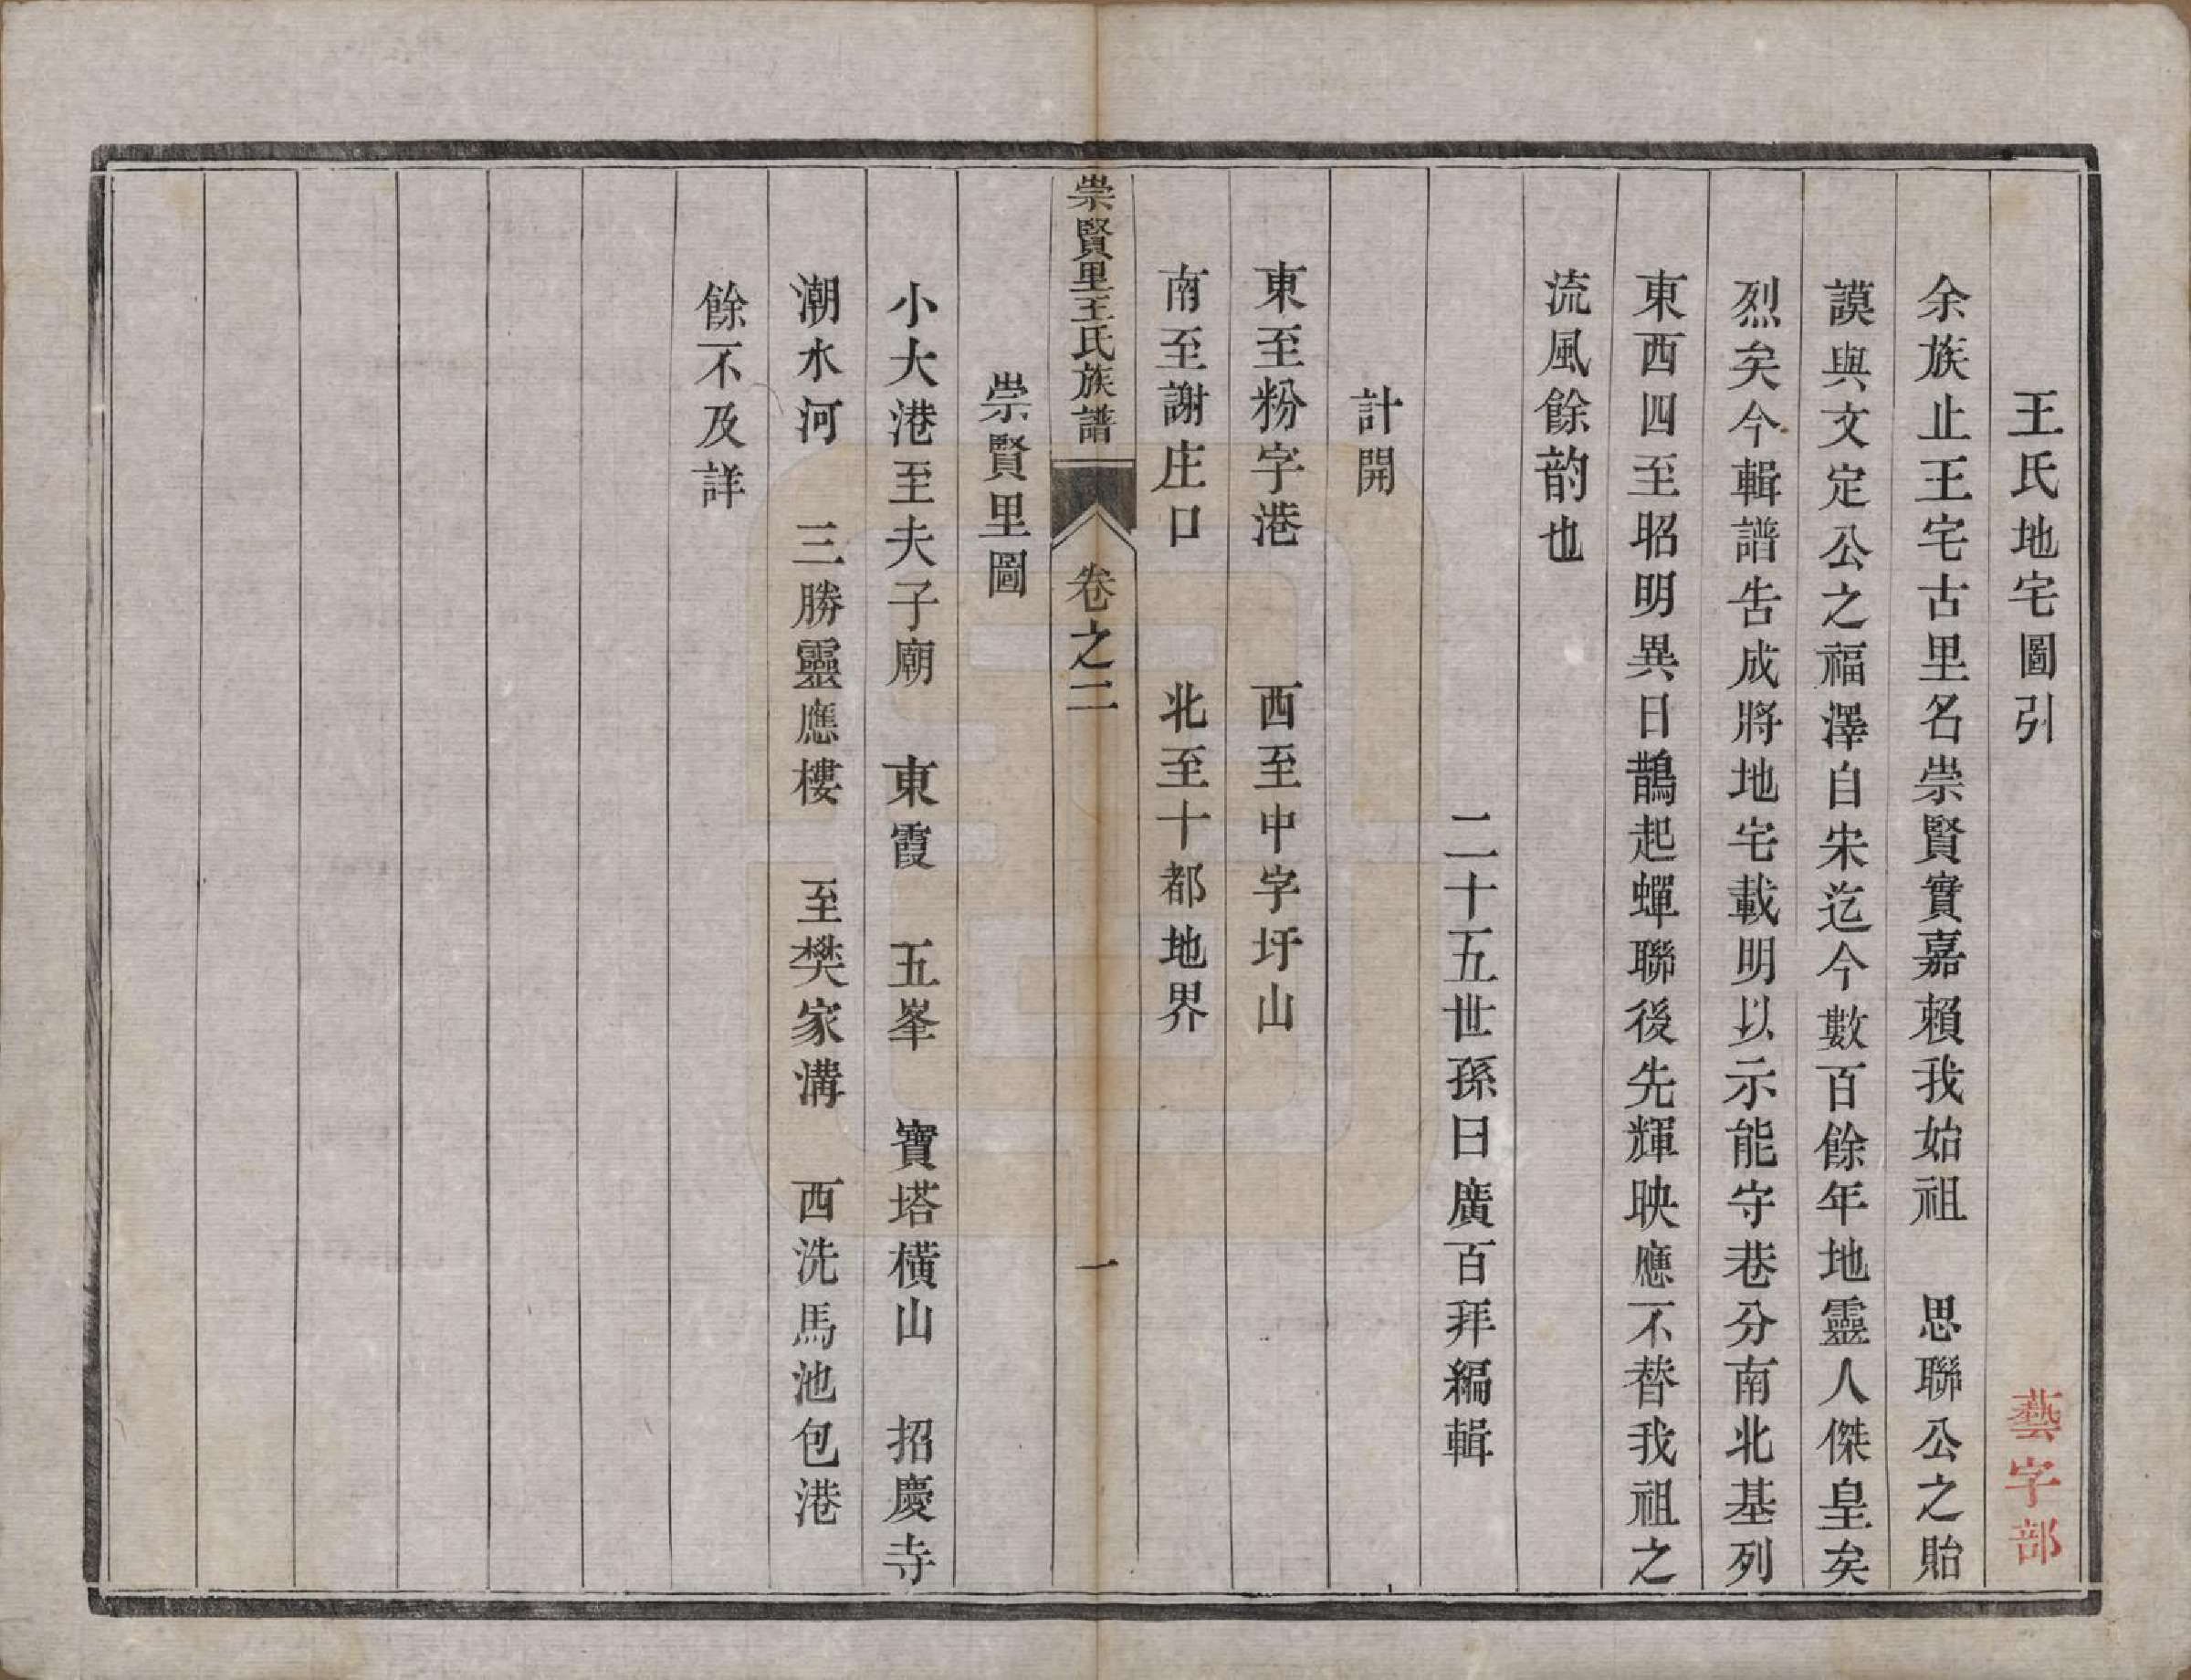 王氏地宅圖引
藝字部
余族止王宅古里名崇賢實嘉賴我始祖　思聯公之貽
謨與文定公之福澤自宋迄今數百餘年地靈人傑皇矣
烈矣今輯譜告成將地宅載明以示能守巷分南北基列
東西四至昭明異日鵲起蟬聯後先輝映應不替我祖之
流風餘韵也
二十五世孫曰廣百拜編輯
計開
東至粉字港　西至中字圩山
南至謝庄口　北至十都地界
崇賢里王氏族譜　卷之二　一
崇賢里圖
小大港至夫子廟　東霞　五峯　寶塔橫山　招慶寺
潮水河　三勝靈應樓　至樊家溝　西洗馬池包港
餘不及詳